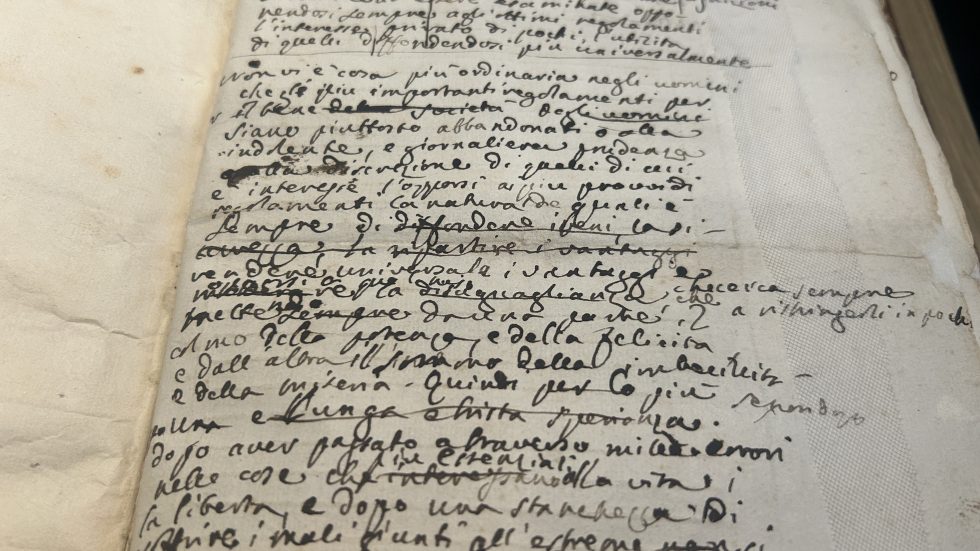 essere esaminate oppo-
nendosi sempre agli ottimi regolamenti
l'interesse privato di pochi, l'utilità
di quelli diffondendosi più universalmente
Non vi è cosa più ordinaria negli uomini
che gl'i più importanti regolamenti per
il bene della società degli uomini
siano piuttosto abbandonati o alla
indolente, e giornaliera prudenza
alla discrezione di quelli di cui
è interesse l'opporsi a' più provvidi
regolamenti la natura de' quali è
sempre di diffondere i beni, la
ripartire i vantaggi
rendere universali i vantaggi e
per la disuguaglianza che cerca sempre
sempre da una parte il a ristringerli in pochi
colmo della potenza, e della felicità
e dall'altra il sommo della imbecillità
e della miseria. Quindi per lo più
una e lunga e trista sperienza.
dopo aver passato attraverso mille errori
più essenziali
nelle cose che interessano alla vita, i
la libertà, e dopo una stanchezza di
soffrire i mali giunti all'estremo